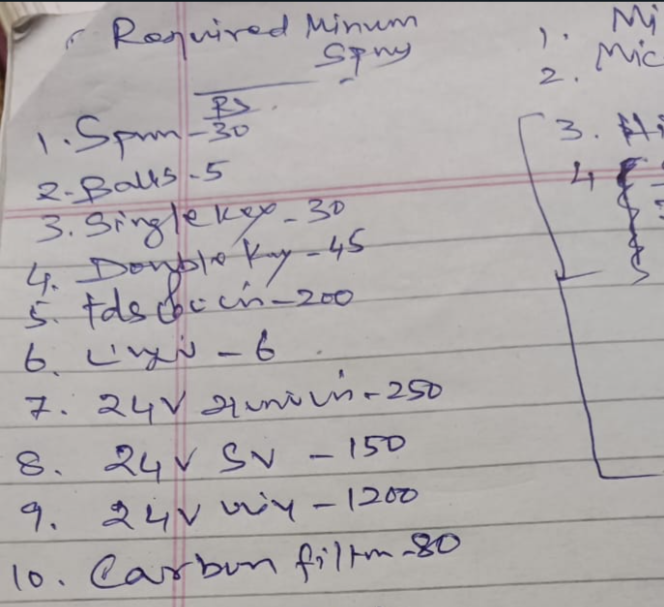 Required Minum
Spny
RS
1. Spun - 30
2. Balls - 5
3. Single key - 30
4. Double key - 45
5. tds - 200
6. - 6
7. 24V - 250
8. 24V SV - 150
9. 24V - 1200
10. Carbon filtm - 80
1. Mi
2. Mic
3. Hi
4